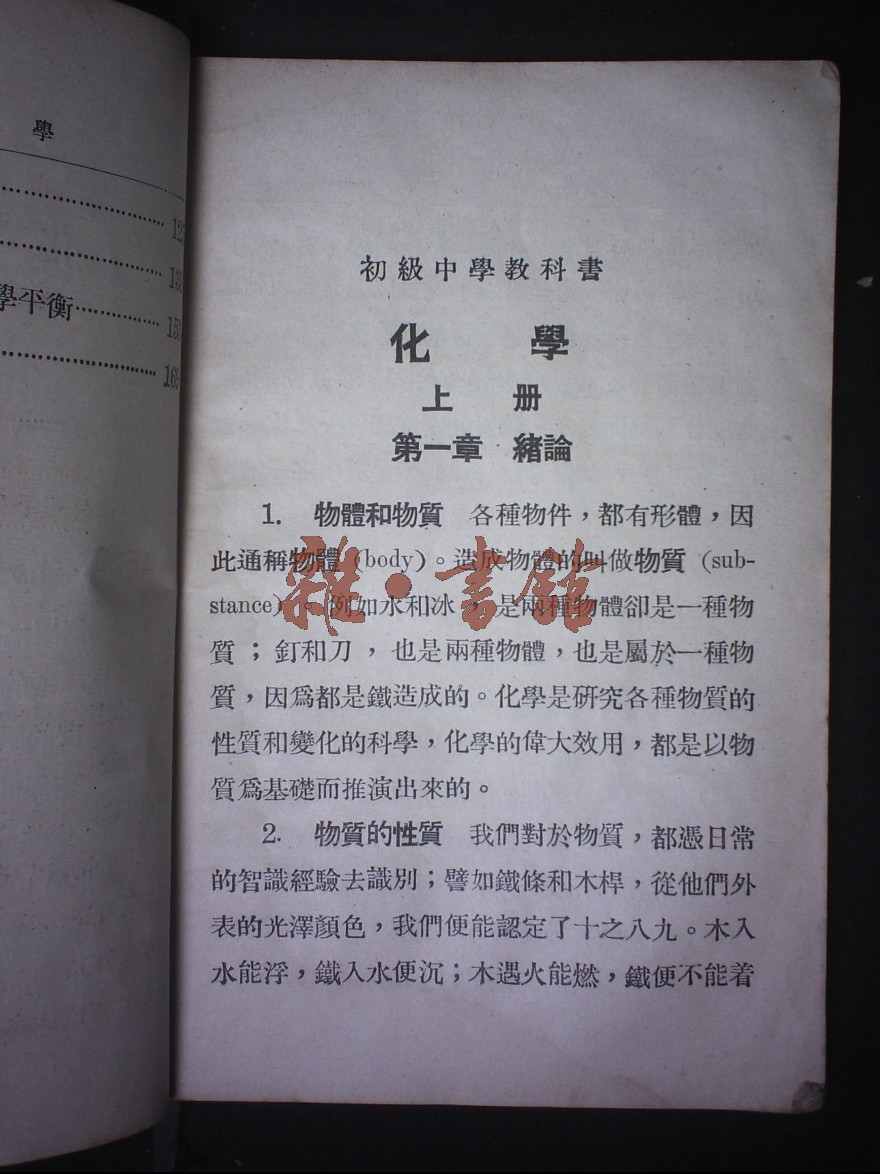 學
學平衡
初級中學教科書
化學
上册
第一章 緒論
1. 物體和物質 各種物件，都有形體，因
此通稱物體 (body)。造成物體的叫做物質 (sub-
stance)。例如水和冰，是兩種物體卻是一種物
質；釘和刀，也是兩種物體，也是屬於一種物
質，因爲都是鐵造成的。化學是研究各種物質的
性質和變化的科學，化學的偉大效用，都是以物
質爲基礎而推演出來的。
2. 物質的性質 我們對於物質，都憑日常
的智識經驗去識別；譬如鐵條和木桿，從他們外
表的光澤顏色，我們便能認定了十之八九。木入
水能浮，鐵入水便沉；木遇火能燃，鐵便不能着
雜·書館